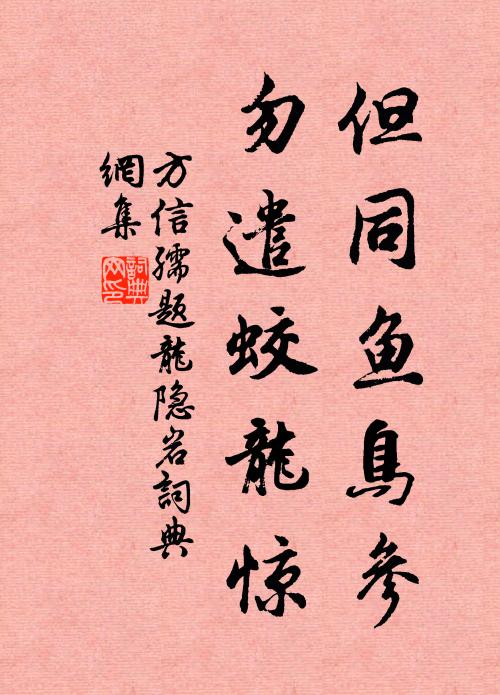 但同鱼鳥參
勿遣蛟龍惊
方信孺题龍隐岩詞典
網集
詞典網印